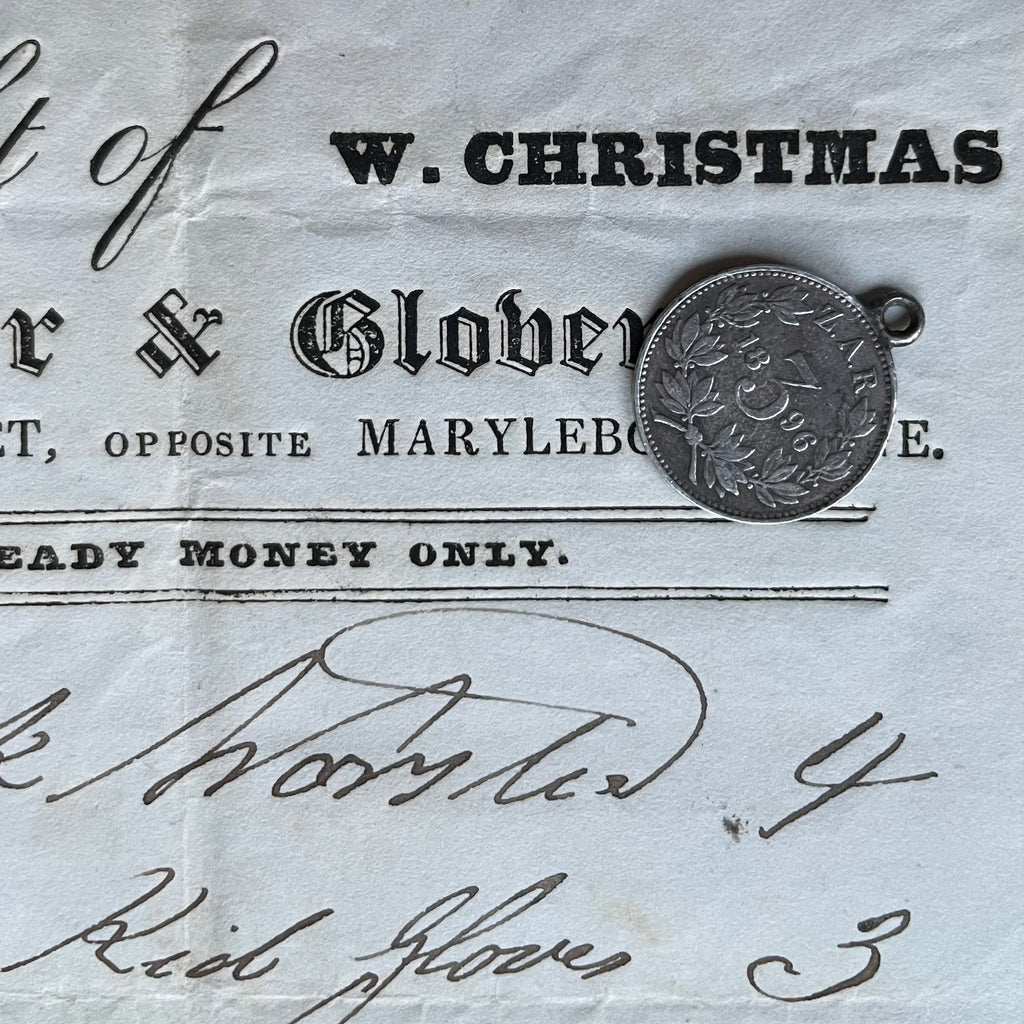 t of W. CHRISTMAS
r & Glover
ET, OPPOSITE MARYLEBO E.
EADY MONEY ONLY.
4
Kid Gloves 3
ZAR
3
18 96